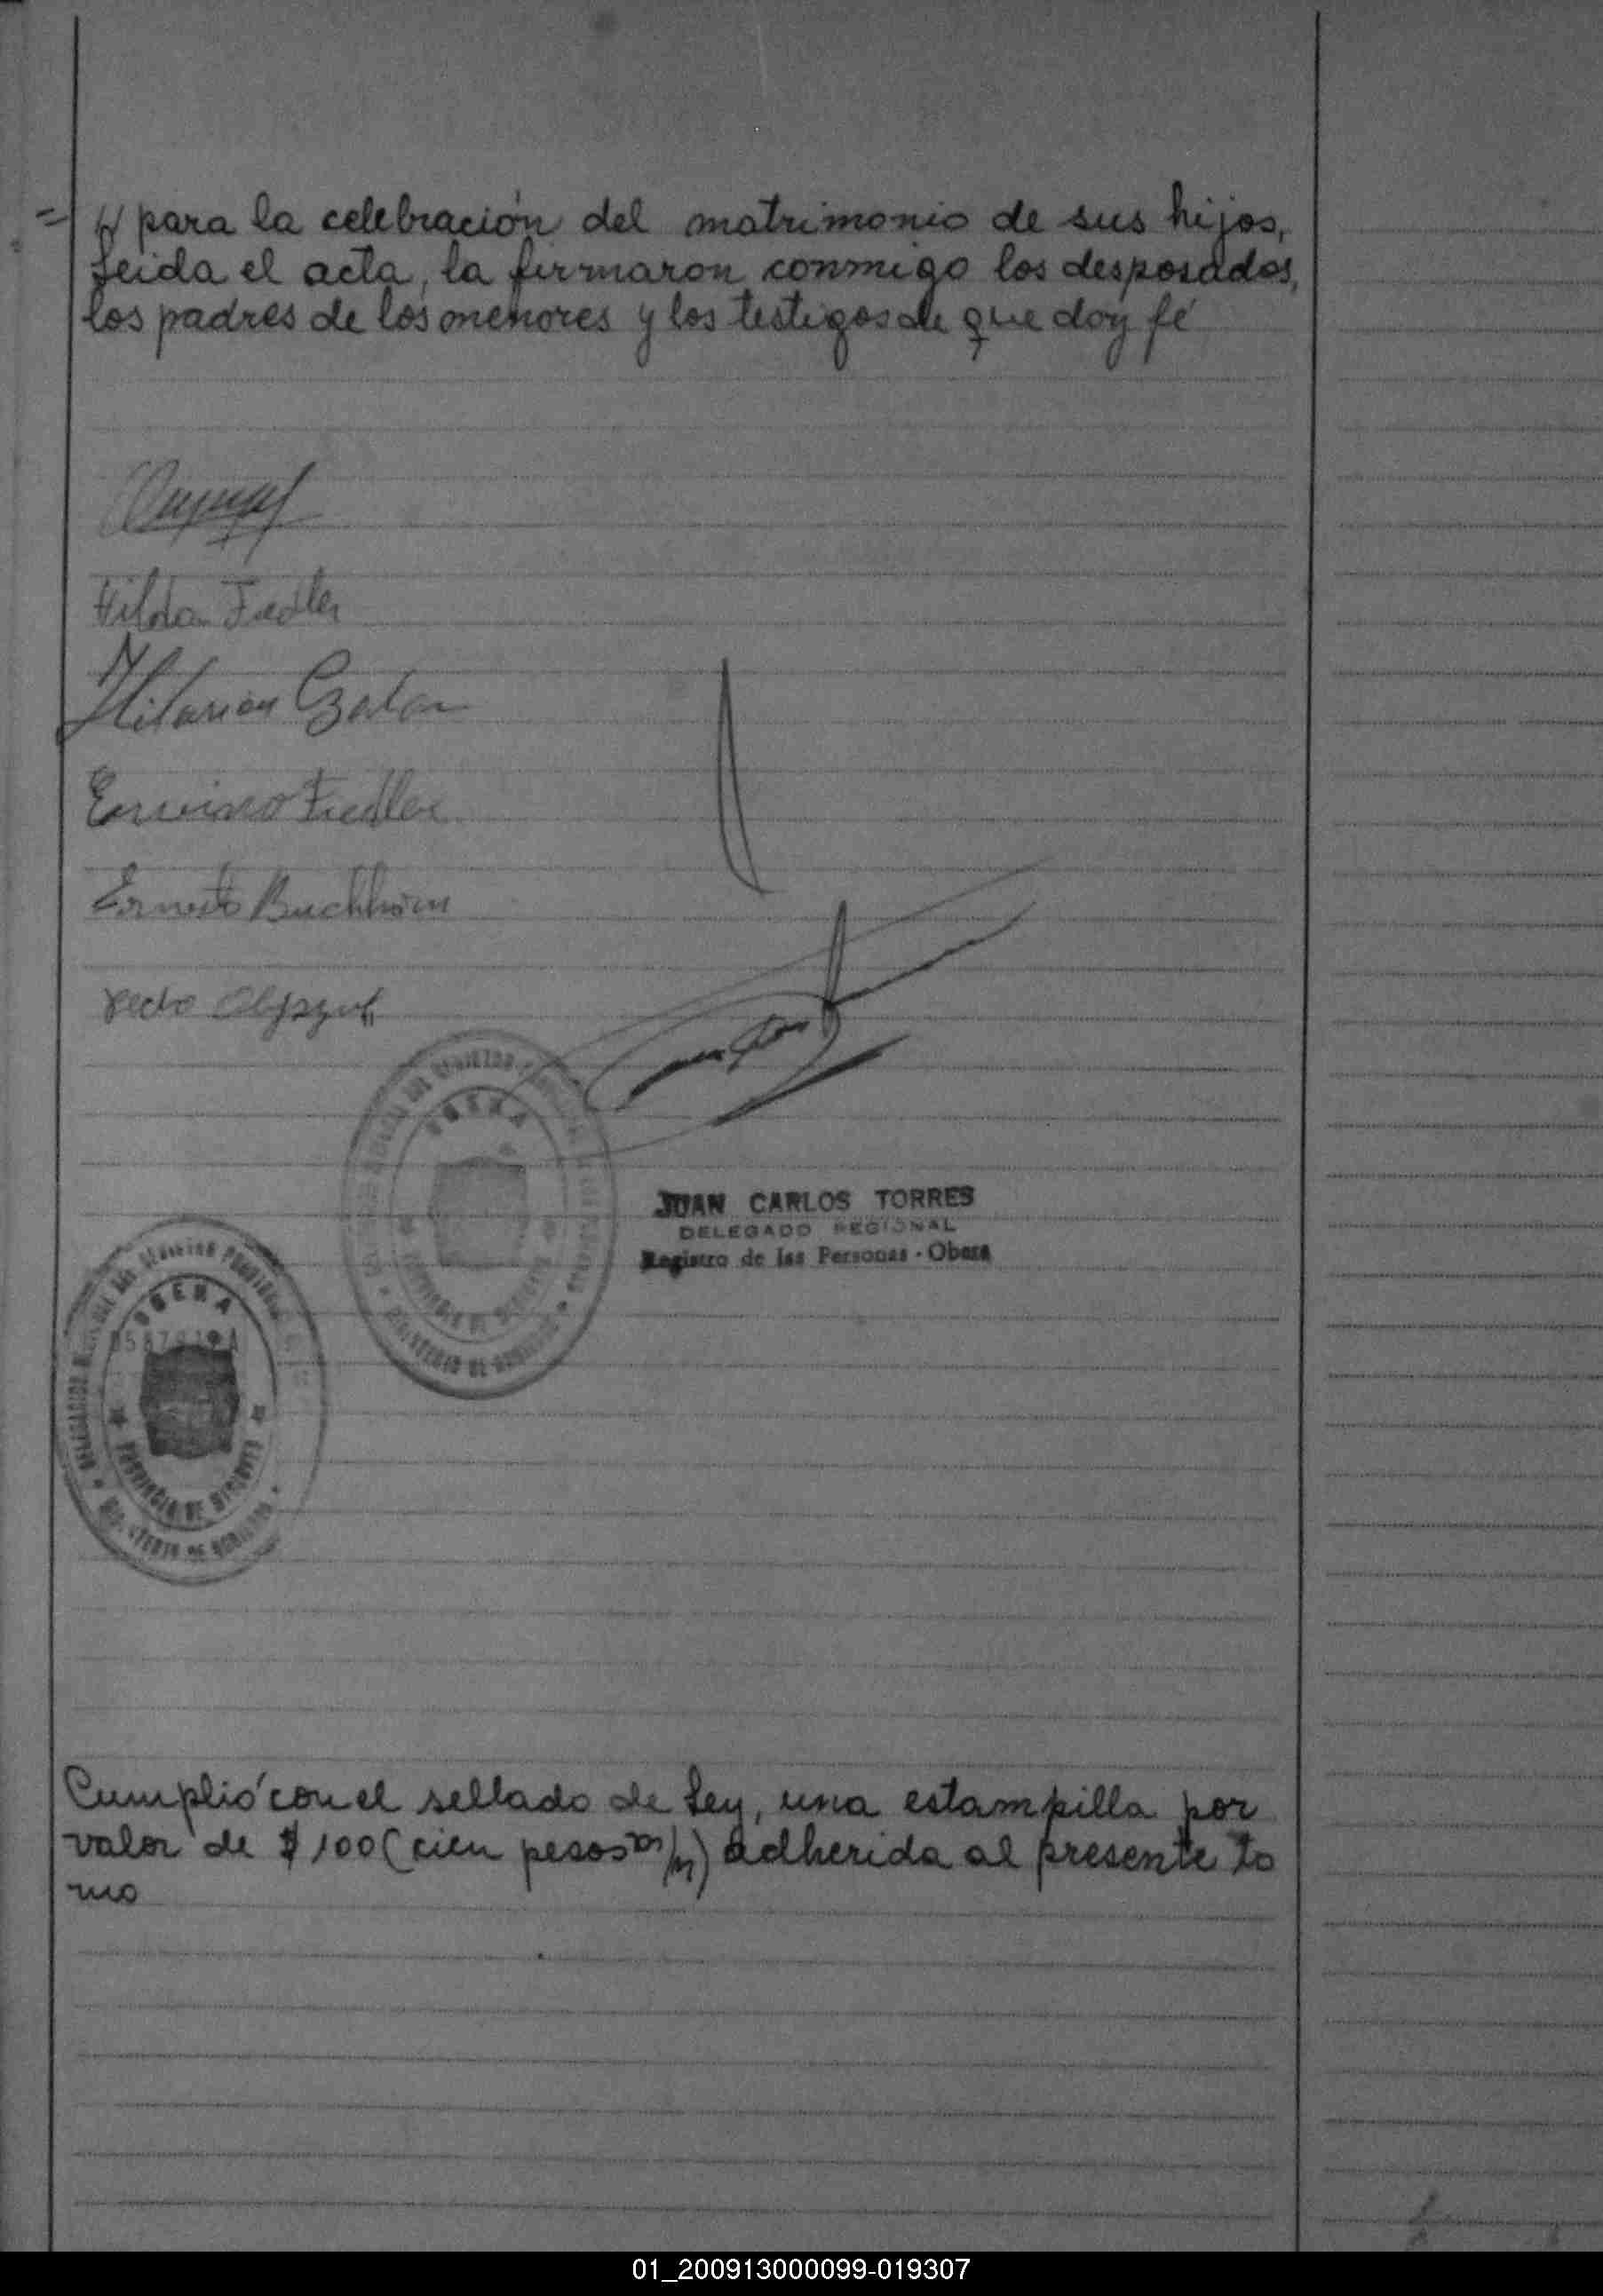 = y para la celebración del matrimonio de sus hijos,
Leida el acta, la firmaron conmigo los desposados,
los padres de los menores y los testigos de que doy fé
Hilda Fiedler
Hilarion
Fiedler
Ernesto Buchhorn
OBERA
JUAN CARLOS TORRES
DELEGADO REGIONAL
Registro de las Personas - Obera
OBERA
PROVINCIA DE MISIONES
Cumplió con el sellado de Ley, una estampilla por
valor de $ 100 (cien pesos m/n) adherida al presente to
mo
01_200913000099-019307